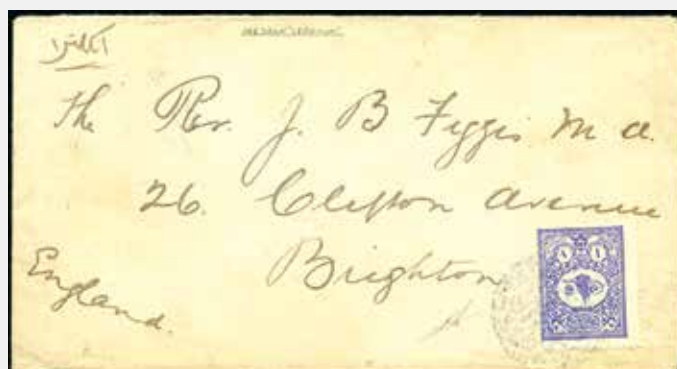 انكلترا
The Rev. J. B Figgis M a.
26. Clifton Avenue
Brighton
England.